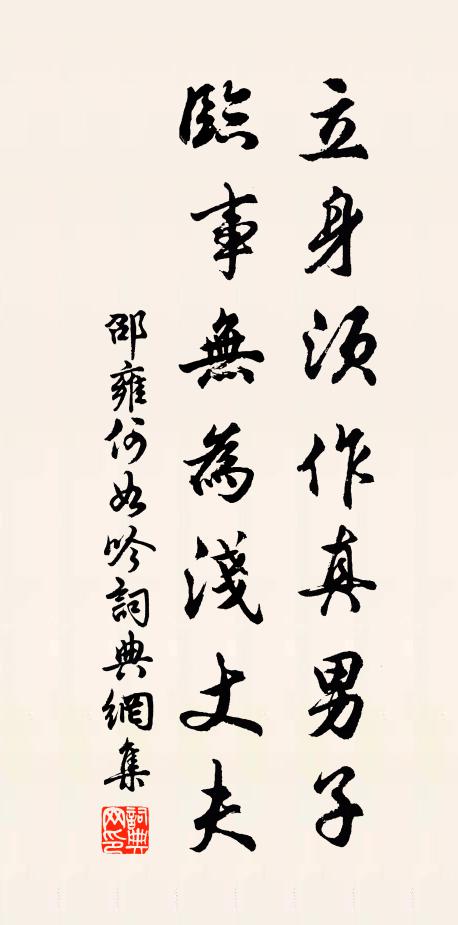 立身須作真男子
臨事無為淺丈夫
邵雍何如吟詞典網集
詞典網印